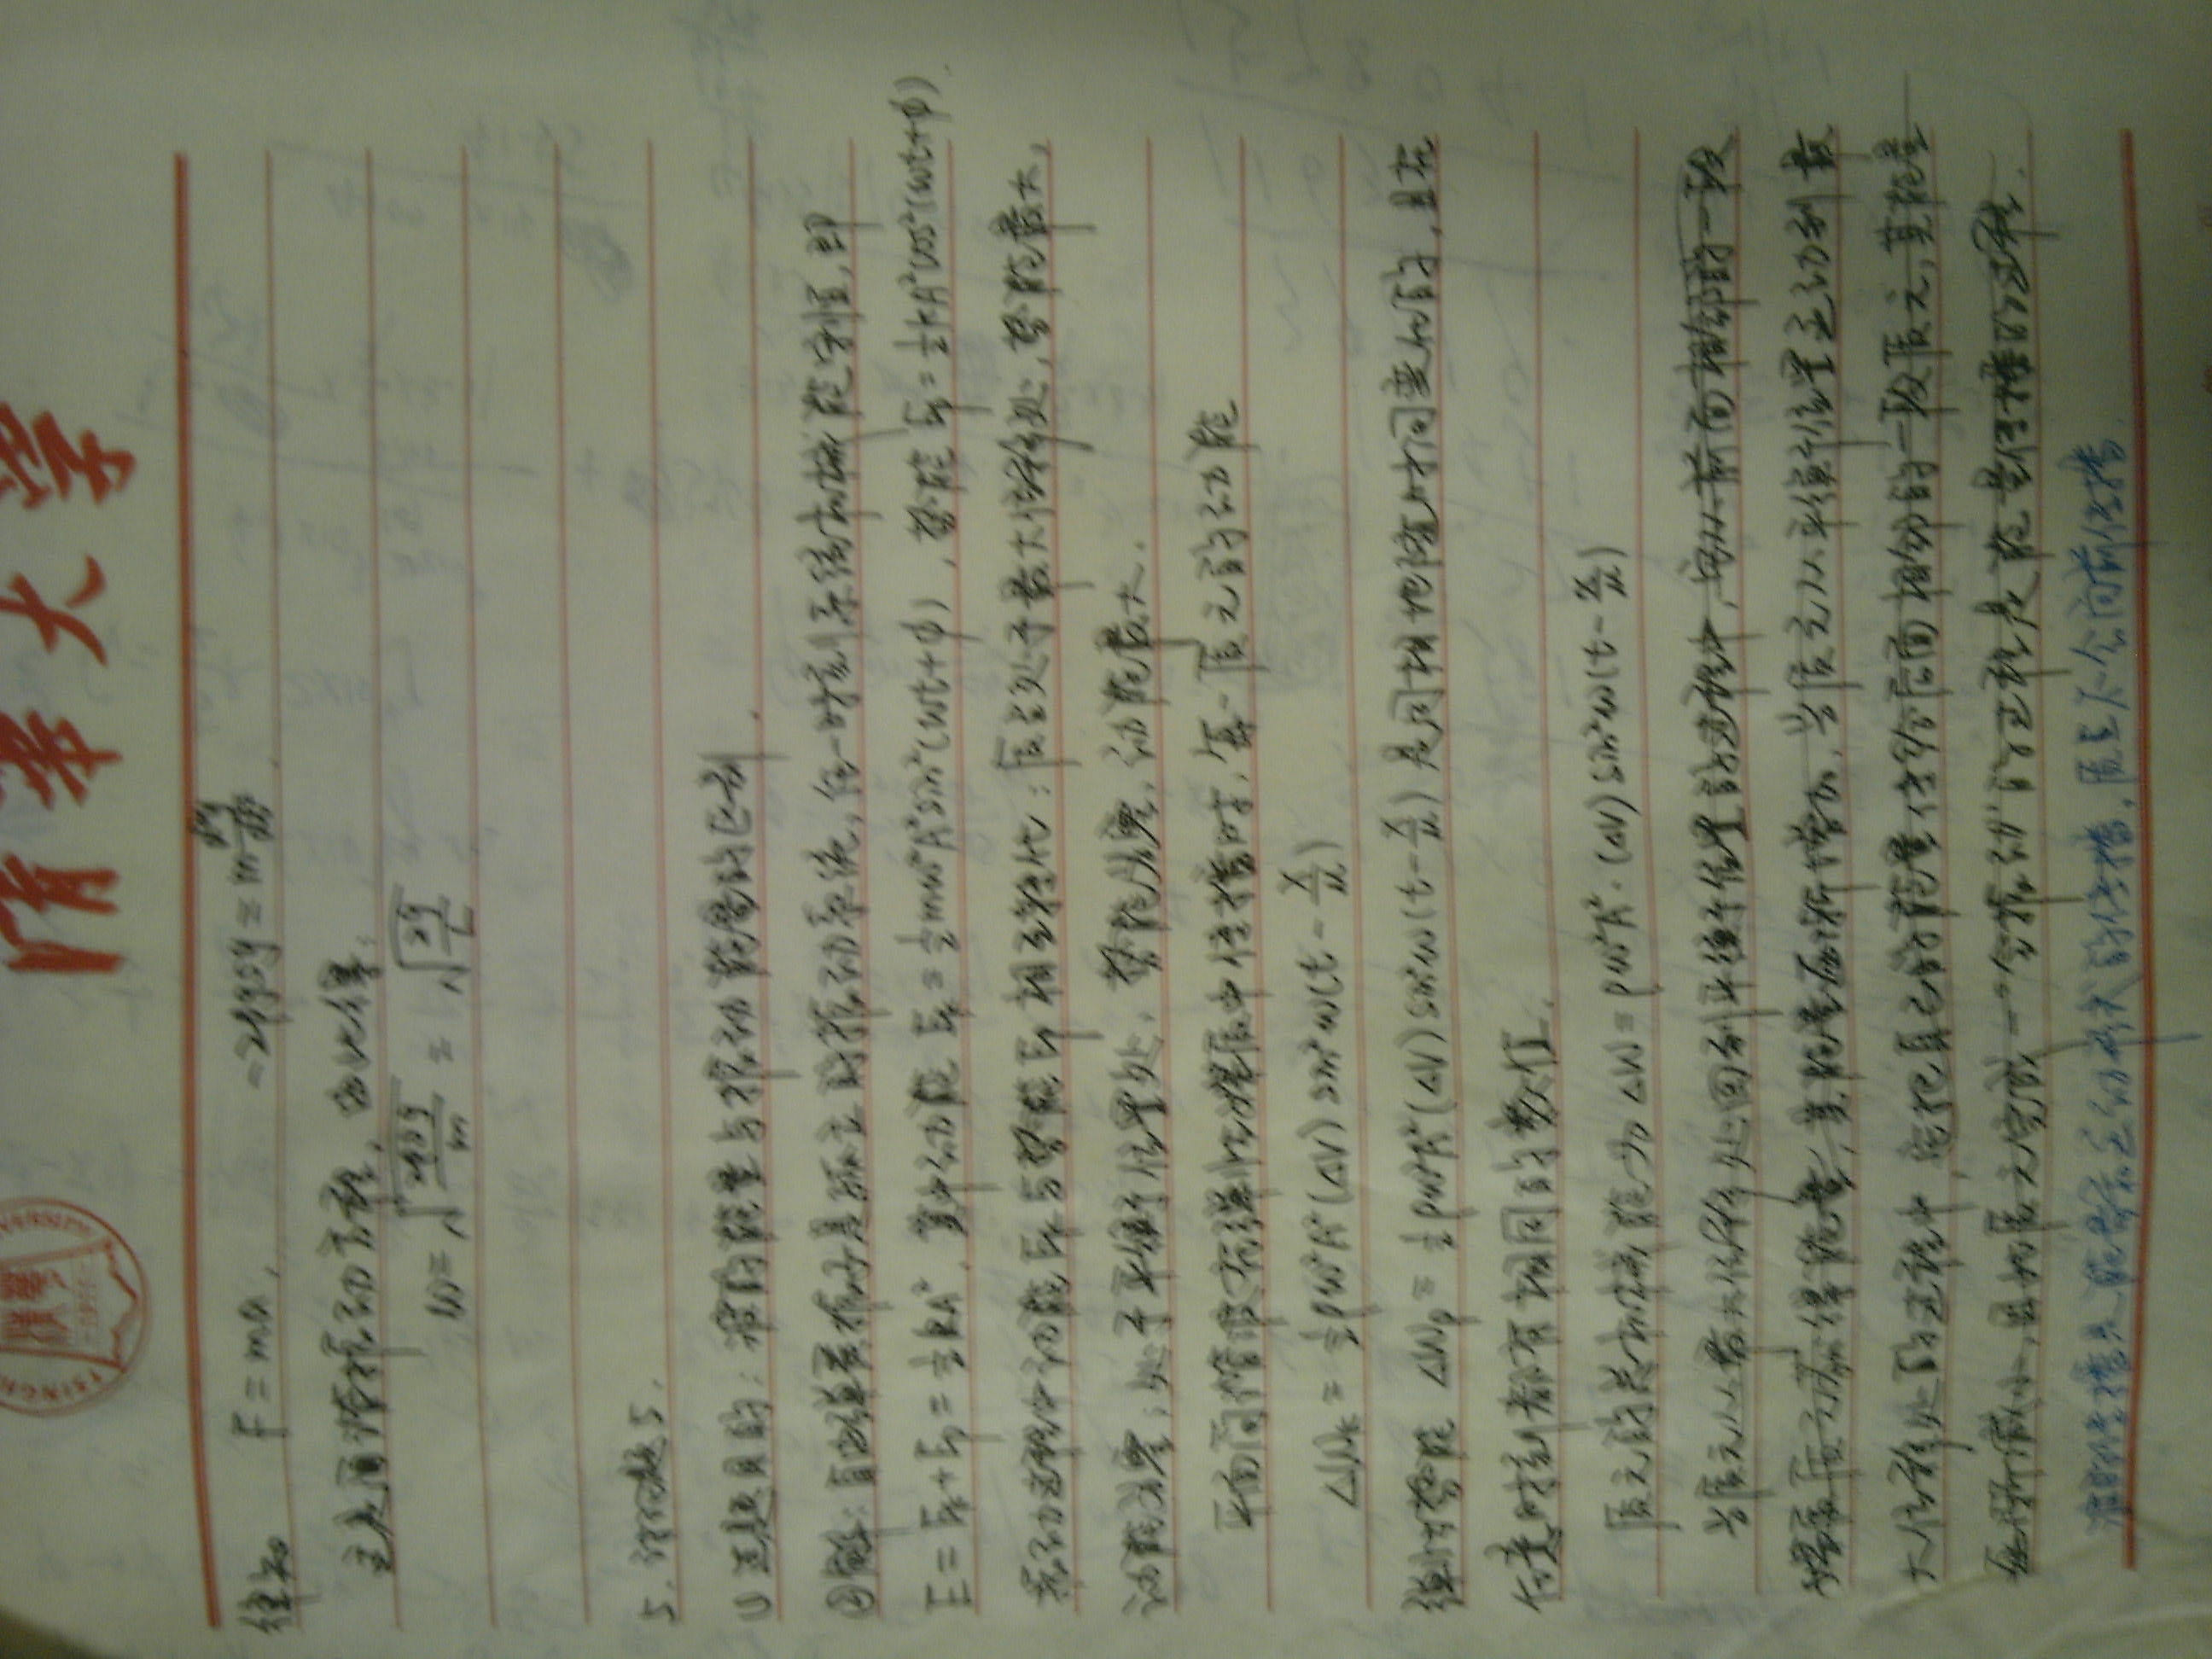 清华大学
律知 F=ma, -2ρgsy=m d²y/dt².
这是简谐振动方程,由此得:
ω=√(2ρsg/m) = √(2g/L)
5. 讨论题5.
① 选题目的:波的能量与振动能量的区别.
②解:自由弹簧振子是孤立的振动系统,任一时刻系统机械能守恒,即
E=Ek+Ep=½kA², 其中动能 Ek=½mω²A²sin²(ωt+φ), 势能 Ep=½kA²cos²(ωt+φ).
振动过程中动能Ek与势能Ep相互转化:质点处于最大位移处,势能最大,
动能为零;处于平衡位置处,势能为零,动能最大.
平面简谐波在弹性媒质中传播时,每一质元的动能
ΔWk = ½ρω²A²(ΔV) sin²ω(t-x/u)
弹性势能 ΔWp = ½ρω²A²(ΔV)sin²ω(t-x/u) 是同相地随时间变化的,且在
任意时刻都有相同的数值.
质元的总机械能为 ΔW=ρω²A²·(ΔV)sin²ω(t-x/u)
当质元从最大位移处回到平衡位置的过程中,它从前面相邻的一段
媒质质元获得能量,其能量逐渐增加,当质元从平衡位置运动到最
大位移处的过程中,它把自己的能量传给后面相邻的一段质元,其能量
逐渐减小,因此质元完成一"全振动"的过程是能量传播的过程.
波的传播是能量和运动形式的传播,质点不会向前传播.